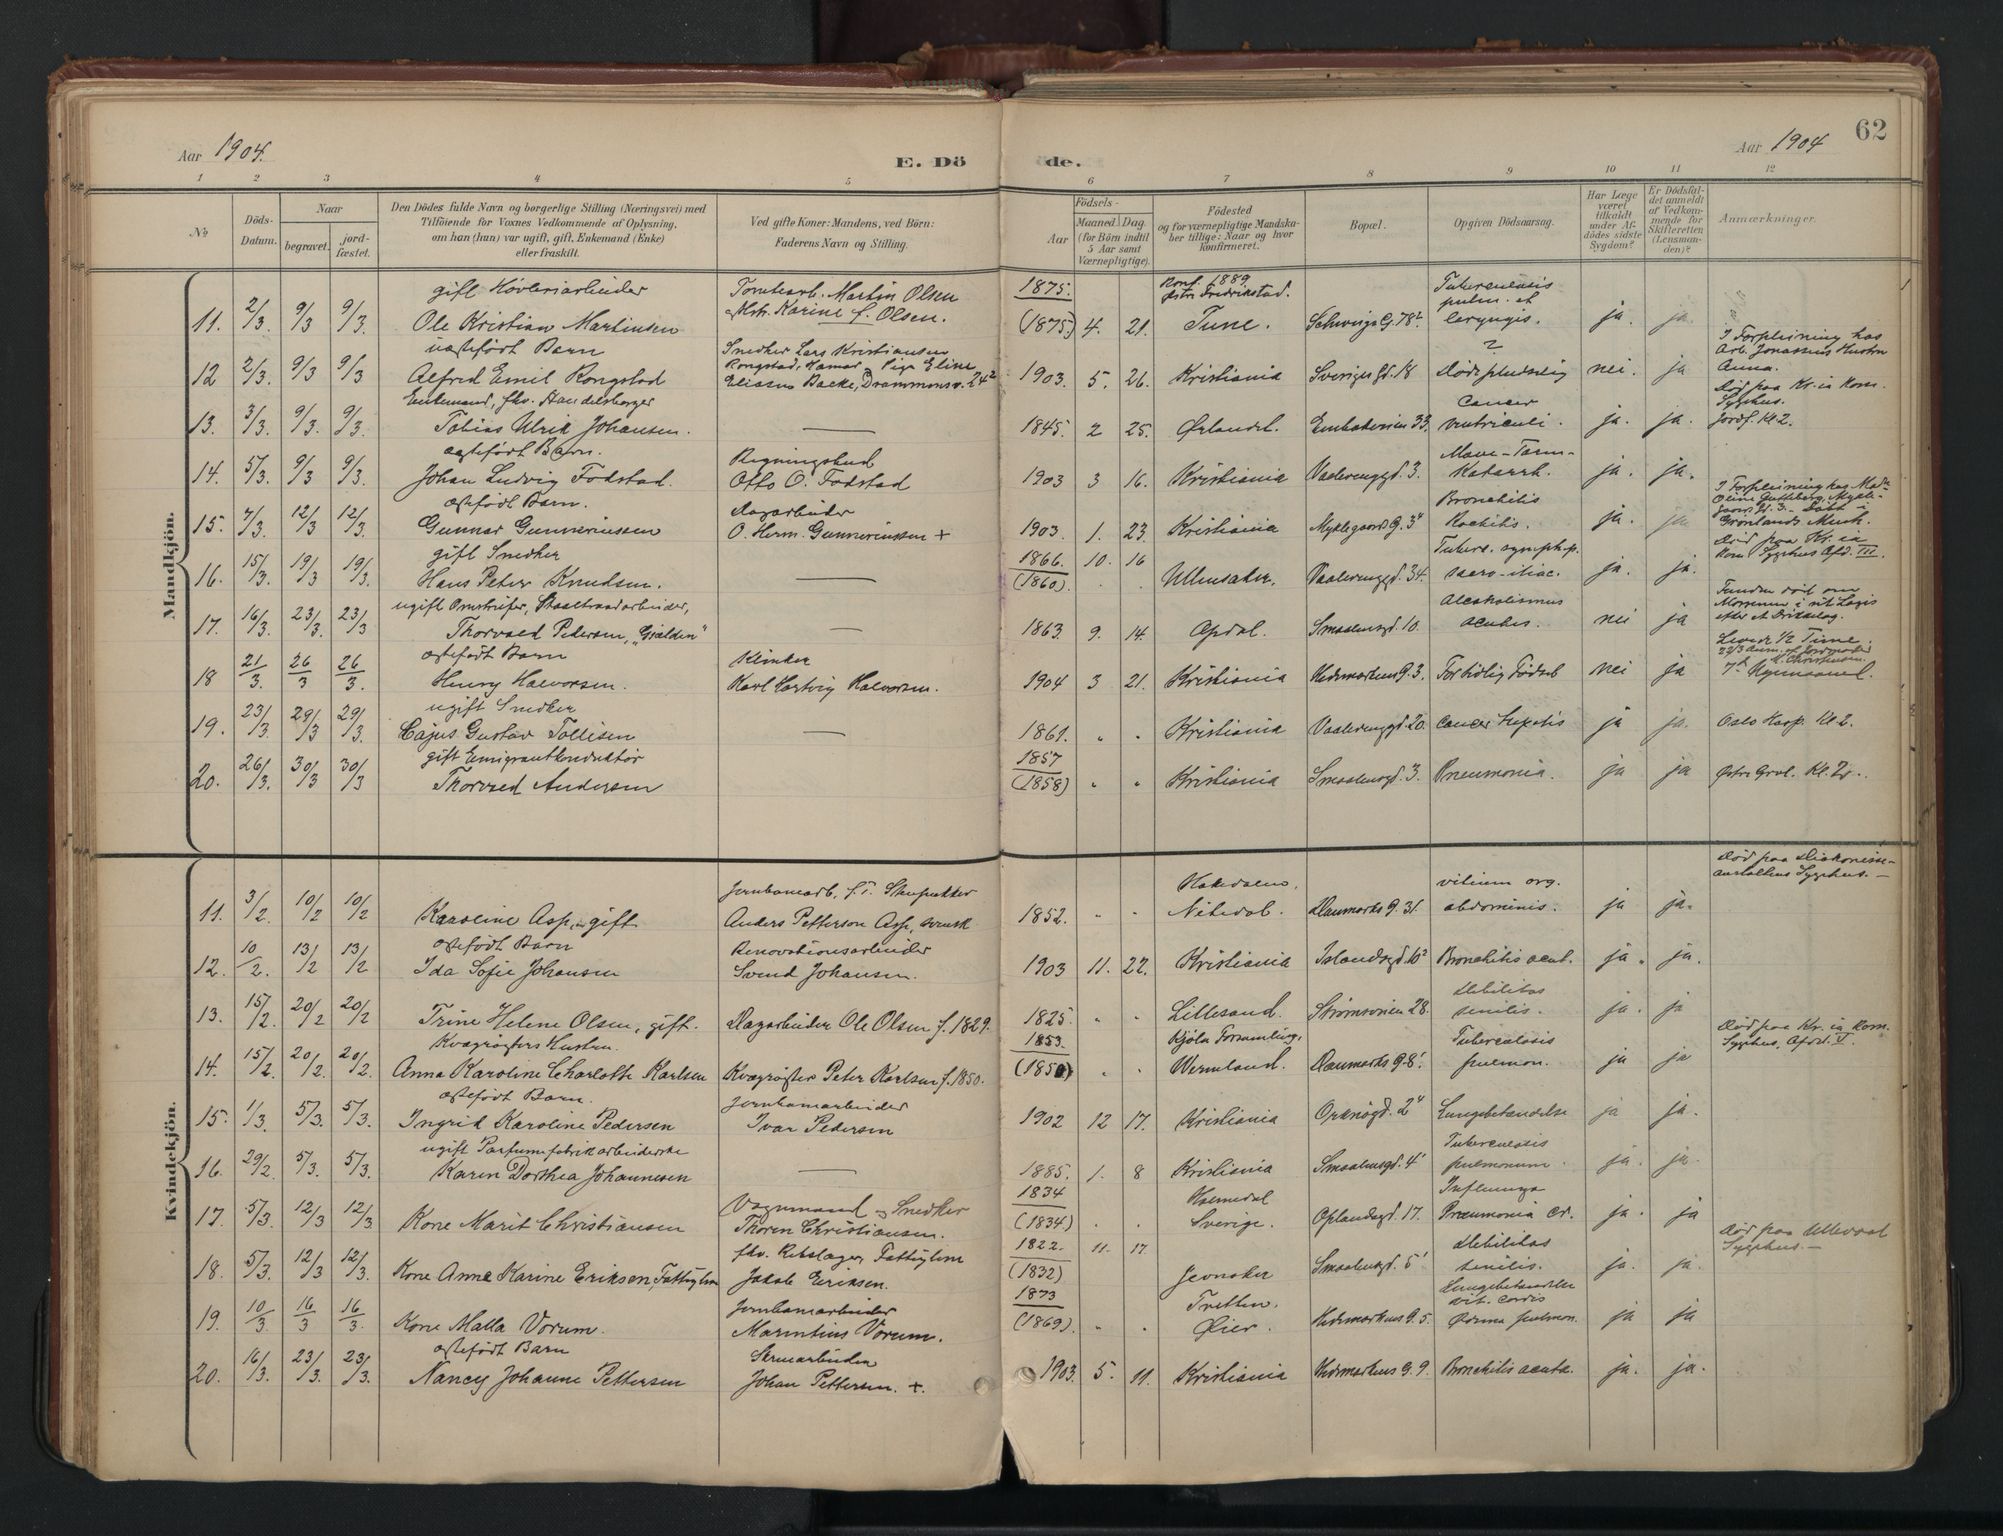 Aar 1904.
E. Dö
de.
Aar 1904
62
1 2 3 4 5 6 7 8 9 10 11 12
No
Döds-Datum.
Naar
begravet.
jord-fæstet.
Den Dödes fulde Navn og borgerlige Stilling (Næringsvei) med
Tilföiende for Voxnes Vedkommende af Oplysning,
om han (hun) var ugift, gift, Enkemand (Enke)
eller fraskilt.
Ved gifte Koner: Mandens, ved Börn:
Faderens Navn og Stilling.
Födsels-
Aar
Maaned. Dag.
(for Börn indtil
5 Aar samt
Værnepligtige).
Födested
og for værnepligtige Mandska-
ber tillige: Naar og hvor
konfirmeret.
Bopæl.
Opgiven Dödsaarsag.
Har Læge
været
tilkaldt
under Af-
dödes sidste
Sygdom?
Er Dödsfal-
det anmeldt
af Vedkom-
mende for
Skifteretten
(Lensman-
den)?
Anmærkninger.
Mandkjön.
gift Høvleriarbeider Tomtearb. Martin Olsen 1875. Konf. 1889 Tuberculosis
Fredrikstad. pulm. et
11. 2/3. 9/3 9/3. Ole Kristian Martinsen Karine f. Olsen. (1875) 4. 21. Tune. Schweigs G. 78² laryngis. ja. ja.
uægtefødt Barn Snedker Lars Kristiansen ? I Forpleining hos
Rongstad, Hamar Pige Eline Arb. Jonassens Hustru
12 2/3. 9/3 9/3 Alfred Emil Rongstad Eliassen Bakke, Drammensv. 24² 1903. 5. 26. Kristiania Sverigesgd. 18 Døde pludselig nei. ja Anna.
Enkemand, fhv. Handelsborger Cancer Død paa Kr.ia Kom. Sygehus.
13. 3/3. 9/3. 9/3. Tobias Ulrik Johansen. — 1845. 2 25. Ørlandet. Enebakveien 33. ventriculi. ja. ja. Jordf. Kl 2.
ægtefødt Barn. Regningsbud Mave-Tarm-
14. 5/3. 9/3 9/3. Johan Ludvig Fodstad. Otto O. Fodstad 1903 3 16. Kristiania Vaalerenggd. 3. Katarrh. ja. ja.
ægtefødt Barn. Dagarbeider Bronchitis I Forpleining hos Mad.
15. 7/3. 12/3 12/3. Gunnar Gunneriussen O. Herm. Gunneriussen + 1903. 1. 23. Kristiania Myklegaards G. 3⁴ Rachitis. ja. ja Grønlands Menh.
gift Snedker 1866. 10. 16 Tuberc. symph. Død paa Kr.ia
16. 15/3. 19/3 19/3. Hans Peter Knudsen. — (1860). Ullensaker. Vaalerenggd. 34. sacro-iliac. ja. ja. Kom Sygehus Afd. III.
ugift Omstreifer, Staaltraadarbeider, Alcoholismus Funden død om
Morgenen i sit Logis
17. 16/3. 23/3. 23/3 Thorvald Pedersen, „Gjalden" — 1863. 9. 14. Opdal. Smaalensgd. 10. acutus. nei ja efter et Drikkelag.
ægtefødt Barn Klinker Levede 1/2 Time.
18 21/3. 26/3 26/3. Henry Halvorsen. Karl Hartvig Halvorsen. 1904 3 21. Kristiania Hedemarkens G. 3. For tidlig Fødsel nei ja
ugift Snedker
19. 23/3. 29/3 29/3. Cajus Gustav Tollisen — 1861. " " Kristiania Vaalerenggd. 20. Cancer hepatis ja ja. Oslo Hosp. Kl. 2.
gift Emigrantkonduktør 1857
20. 26/3. 30/3 30/3 Thorvald Andersen (1858) " " Kristiania Smaalensgd. 3. Pneumonia. ja ja Østre Gravl.
Kvindekjön.
Jernbanearb. Hakedalen. vitium org. Død paa Diakonisse-
anstaltens Sygehus. —
11. 3/2. 10/2 10/2 Karoline Asp, gift. Anders Petterson Asp, svensk 1852. " " Nitedal. Danmarks G. 31. abdominis. ja ja.
ægtefødt Barn Renovationsarbeider
12. 10/2. 13/2 13/2 Ida Sofie Johansen Svend Johansen. 1903 11. 22. Kristiania Islandsgd. 10² Bronchitis acut. ja. ja.
Debilitas
13. 15/2. 20/2 20/2 Trine Helene Olsen, gift. Dagarbeider Ole Olsen f. 1829. 1825. " " Lillesand. Strømsveien 28. senilis. ja. ja
Kvægrøgters Hustru 1853. Tuberculosis Død paa Kr.ia Kom.
14. 15/2. 20/2. 20/2. Anna Karoline Charlotte Karlsen Kvægrøgter Peter Karlsen f. 1850. (1850) " " Wermland. Danmarks G. 8' pulmon. ja ja Sygehus, Afd. V.
ægtefødt Barn. Jernbanearbeider
15. 1/3. 5/3. 5/3. Ingrid Karoline Pedersen Ivar Pedersen 1902 12 17. Kristiania Orknøgd. 2⁴ Lungebetændelse ja ja.
ugift Parfumefabrikarbeiderske Tuberculosis
16. 29/2. 5/3. 5/3. Karen Dorthea Johannesen — 1885. 1. 8 Kristiania Smaalensgd. 4' pulmonum. ja. ja.
Vognmand Snedker 1834 Influenza
17. 5/3. 12/3 12/3 Kone Marit Christiansen Thoren Christiansen. (1834) " " Sverige. Oplandsgd. 17. Pneumonia cr. ja. ja
fhv. Rebslager, Fattiglem 1822. 11. 17. Debilitas Død paa Ullevaal
18. 5/3. 12/3 12/3. Kone Anne Karine Eriksen, Fattiglem Jakob Eriksen. (1832) Jevnaker Smaalensgd. 5' senilis. ja. ja. Sygehus. —
Jernbanearbeider 1873 Tretten. Lungebetændelse
vit. cordis
19. 10/3. 16/3 16/3. Kone Malla Vorum. Marentius Vorum. (1869) " " Øier. Hedemarkens G. 5. Ødema pulmon. ja ja
ægtefødt Barn Skruearbeider
20. 16/3. 23/3. 23/3. Nancy Johanne Pettersen Johan Pettersen. +. 1903. 5. 11. Kristiania Hedemarkens G. 9. Bronchitis acuta. ja. ja.